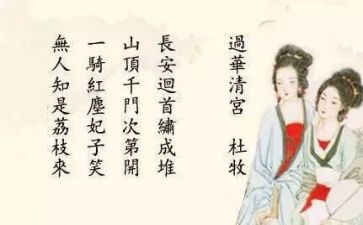 過華清宮 杜牧
長安迴首繡成堆
山頂千門次第開
一騎紅塵妃子笑
無人知是荔枝來